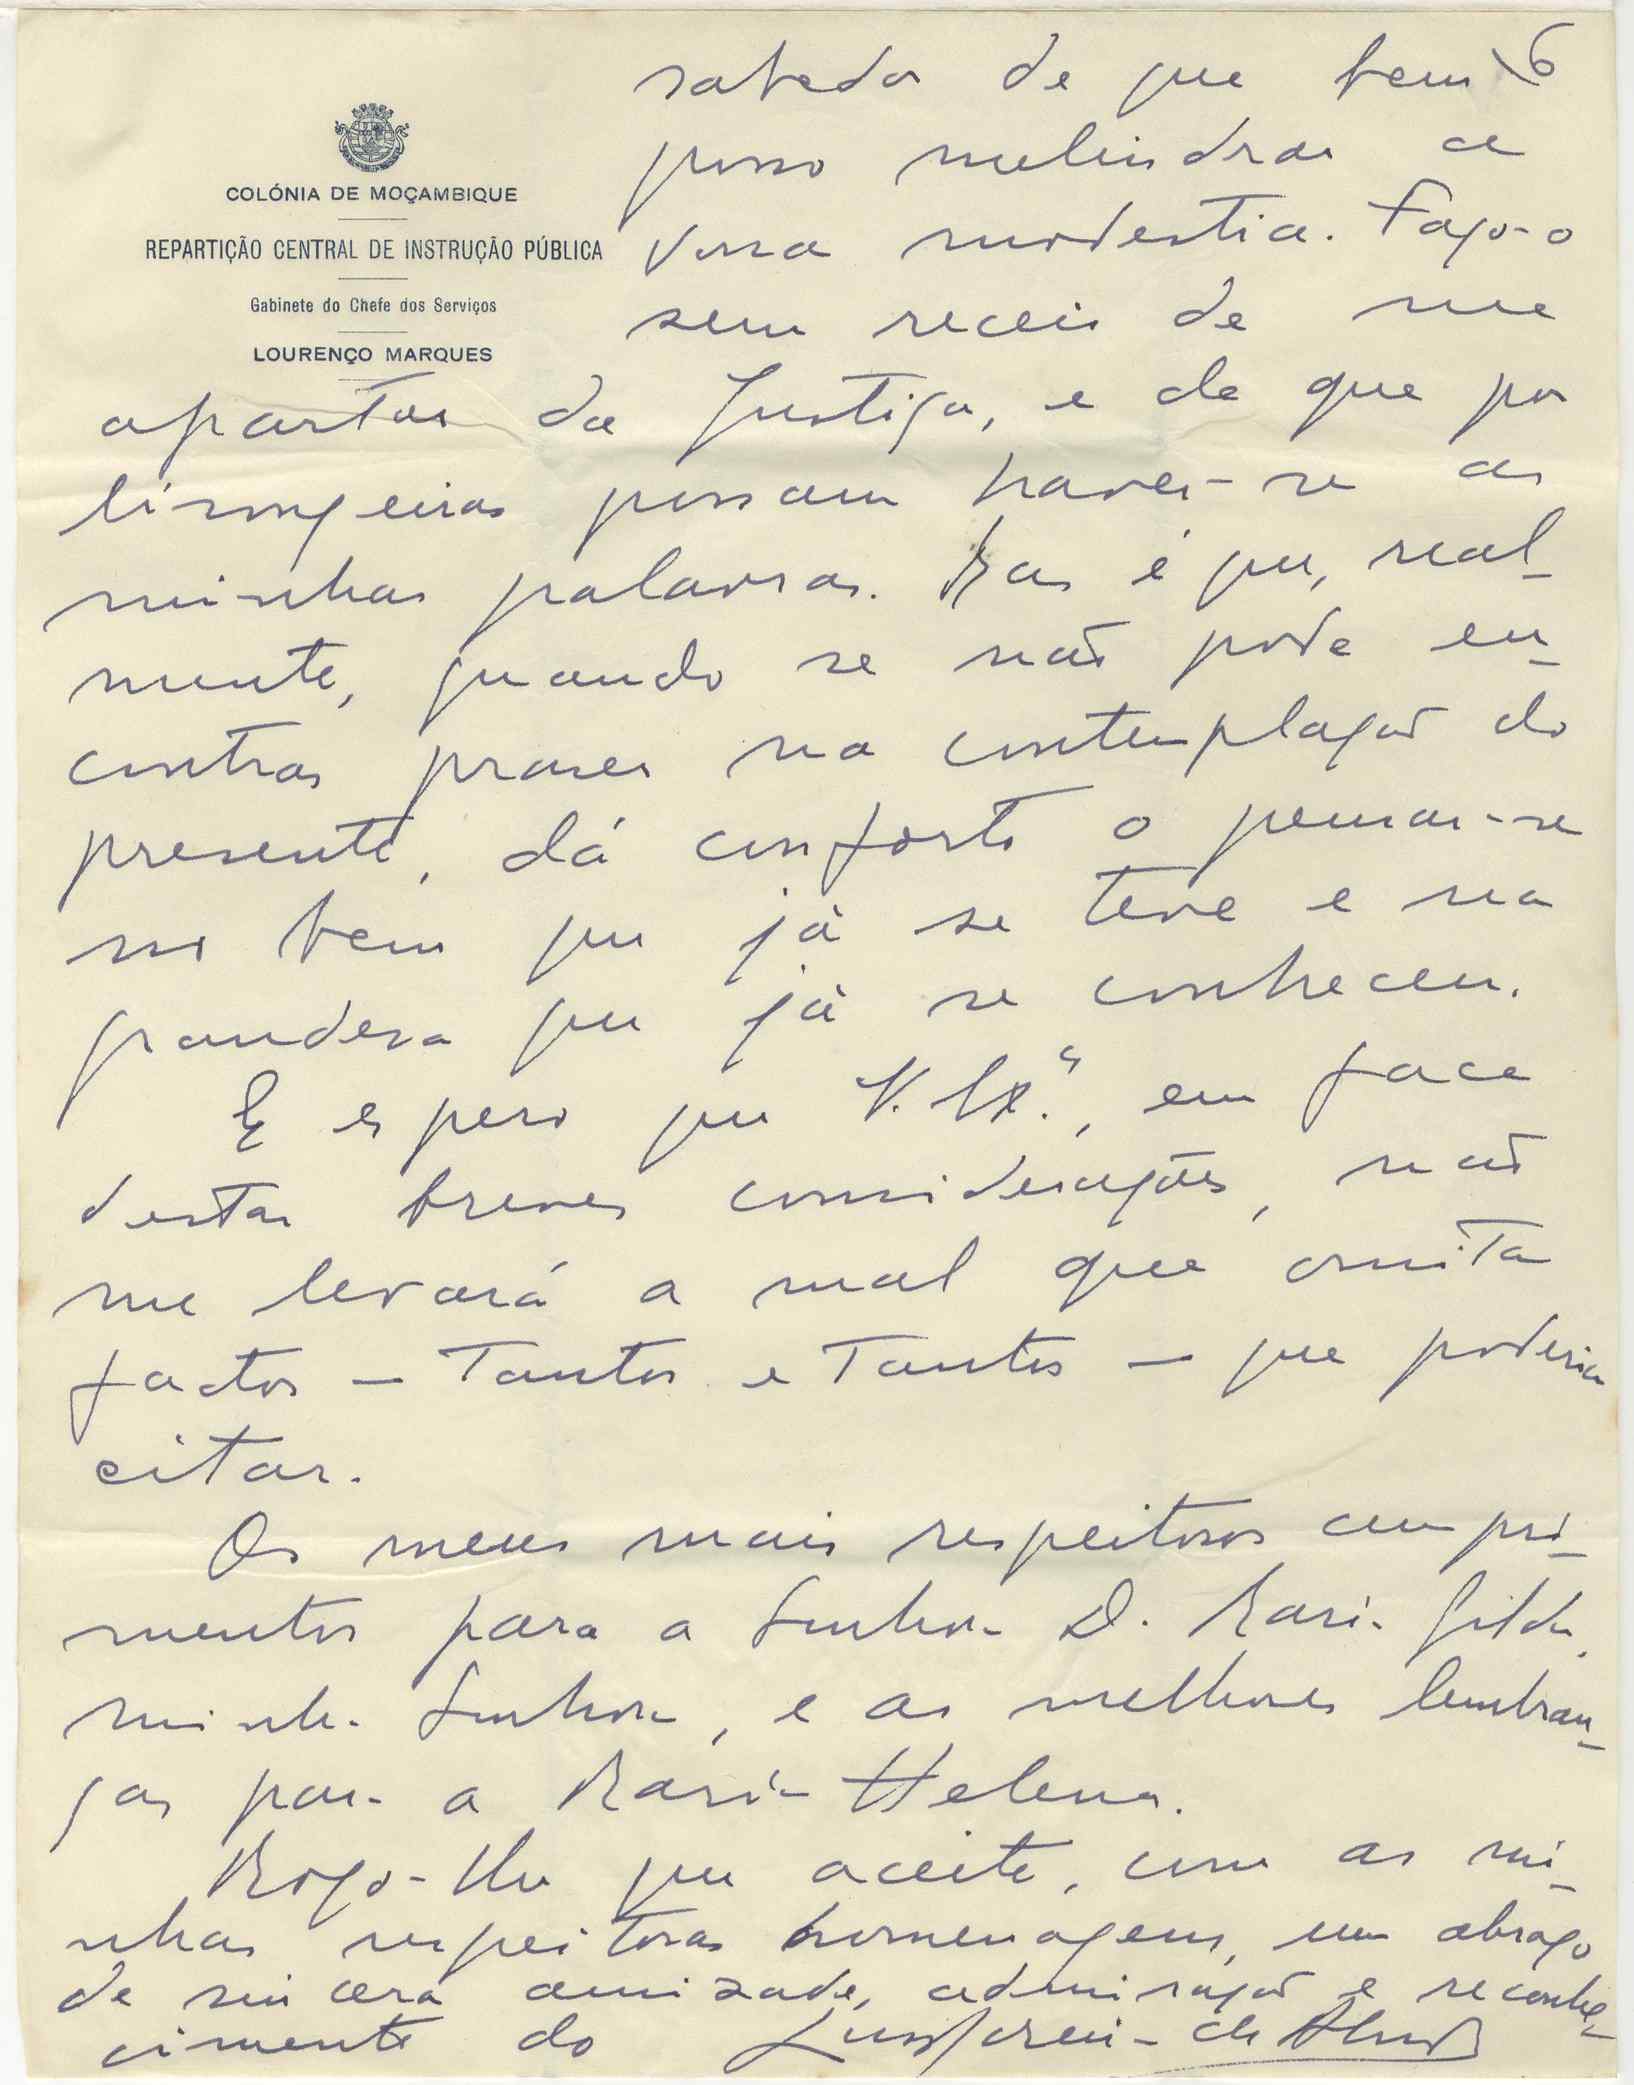 COLÓNIA DE MOÇAMBIQUE
REPARTIÇÃO CENTRAL DE INSTRUÇÃO PÚBLICA
Gabinete do Chefe dos Serviços
LOURENÇO MARQUES
6
sabedor de que bem
posso melindrar a
vossa modestia. Faço-o
sem receio de me
apartar da Justiça, e de que por
lisongeiras possam haver-se as
minhas palavras. Mas é que, real-
mente, quando se não pode en-
contrar prazer na contemplação do
presente, dá conforto o pensar-se
no bem que já se teve e na
grandesa que já se conheceu.
E espero que V. Exª., em face
destas breves considerações, não
me levará a mal que omita
factos — tantos e tantos — que poderia
citar.
Os meus mais respeitosos cumpri-
mentos para a Senhora D. Maria Gilda,
minha Senhora, e as melhores lembran-
ças para a Maria Helena.
Rogo-lhe que aceite, com as mi-
nhas respeitosas homenagens, um abraço
de sincera amizade, admiração e reconhe-
cimento do